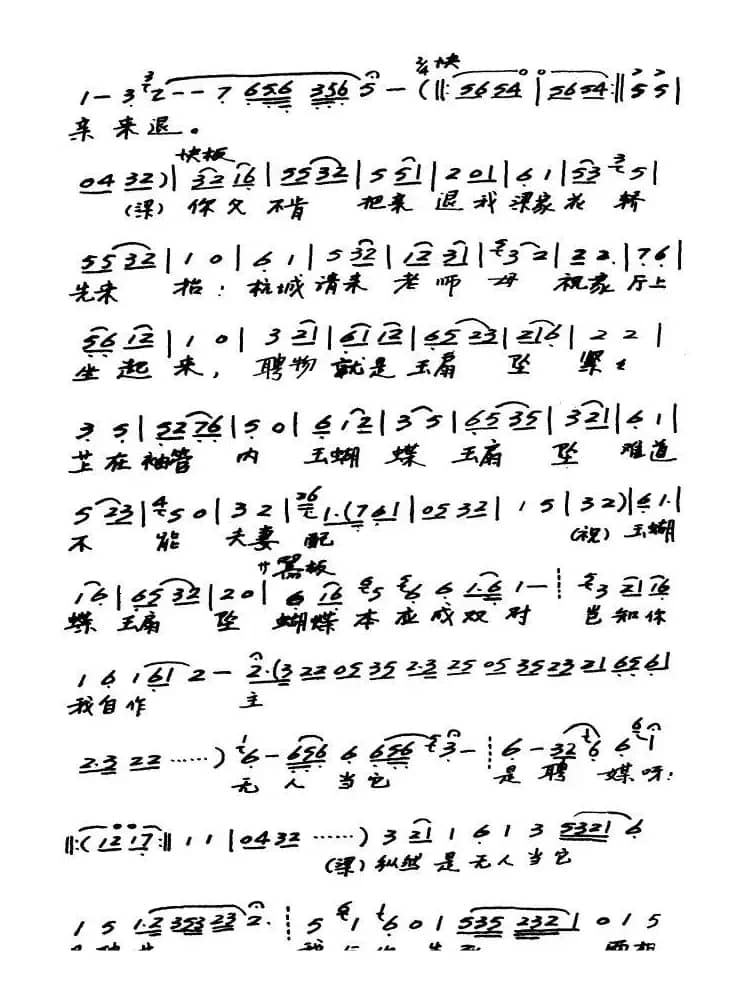 1 – 3 2 – – 7 656 356 5 – (‖: 5654 | 5654 :‖ 5 5 |
2/4 快
亲来退。
快板
04 32) | 32 16 | 55 32 | 5 51 | 2 01 | 6 1 | 53 5 |
(梁) 你欠不肯 把来退我梁家花轿
55 32 | 1 0 | 6 1 | 5 32 | 12 31 | 3 2 | 22. | 76 |
先来 抬：杭城请来老师母 祝家厅上
56 12 | 1 0 | 3 21 | 61 12 | 65 23 | 216 | 2 2 |
坐起来，聘物就是玉扇坠 紧
3 5 | 52 76 | 5 0 | 6 12 | 3 5 | 65 35 | 3 21 | 6 1 |
在袖管 内 玉蝴蝶玉扇 坠 难道
5 23 | 5 0 | 3 2 | 1.(761 | 05 32 | 1 5 | 32) | 61. |
不 能 夫妻配 (祝) 玉蝴
嚣板
16 | 65 32 | 20 | 6 16 5 6 6 1.6 1 – ┊ 3 21 16
蝶玉扇 坠 蝴蝶本应成双对 岂知你
1 6 1 61 2 – 2.(3 22 05 35 2.3 25 05 35 23 21 656
我自作 主
2.3 22 ……) 6 – 656 6 656 3 – ┊ 6 – 32 6 6 1
无 人 当它 是聘 媒呀：
‖:(12 17 :‖ 1 1 | 04 32 ……) 3 21 1 6 1 3 5321 6
(梁) 纵然是无人当它
1 5 1.2 353 23 2. ┊ 5 1 6 0 1 535 232 | 0 1 5